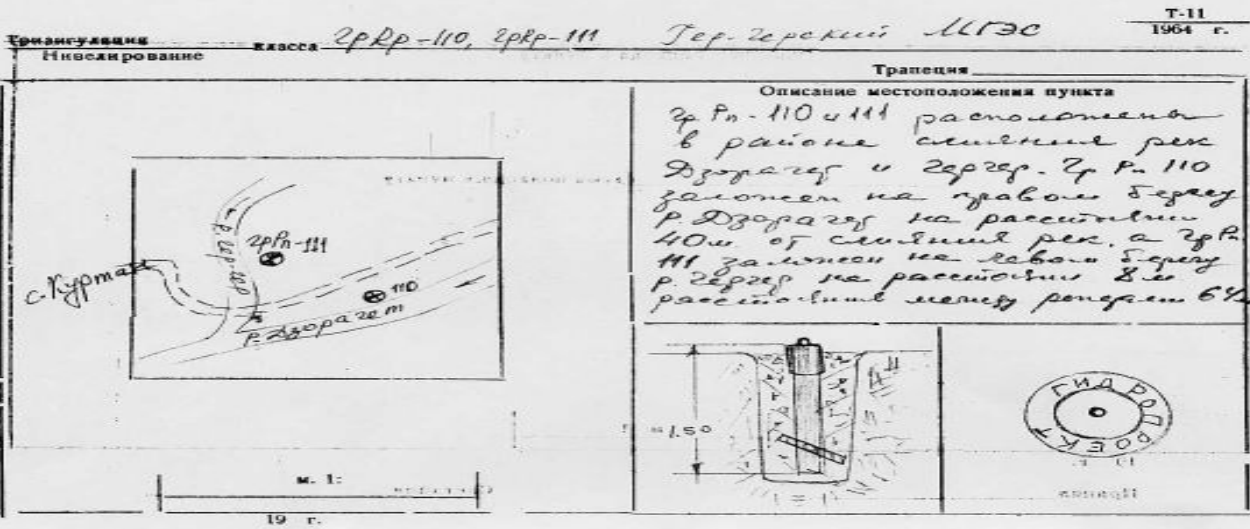 Т-11
1964 г.
Триангуляция
Нивелирование
класса грРр-110, грRp-111 Гер-герский МГЭС
Трапеция
Описание местоположения пункта
гр Рп-110 и 111 расположены
в районе слияния рек
Дзорагет и Гергер. Гр Рп 110
заложен на правом берегу
р. Дзорагет на расстоянии
40м от слияния рек, а гр Рп
111 заложен на левом берегу
р. Гергер на расстоянии 8 м
расстояние между реперами
с. Куртан
р. Гер-гер
грРп-111
110
р. Дзорагет
1.50
ГИДРОПРОЕКТ
м. 1:
19 г.